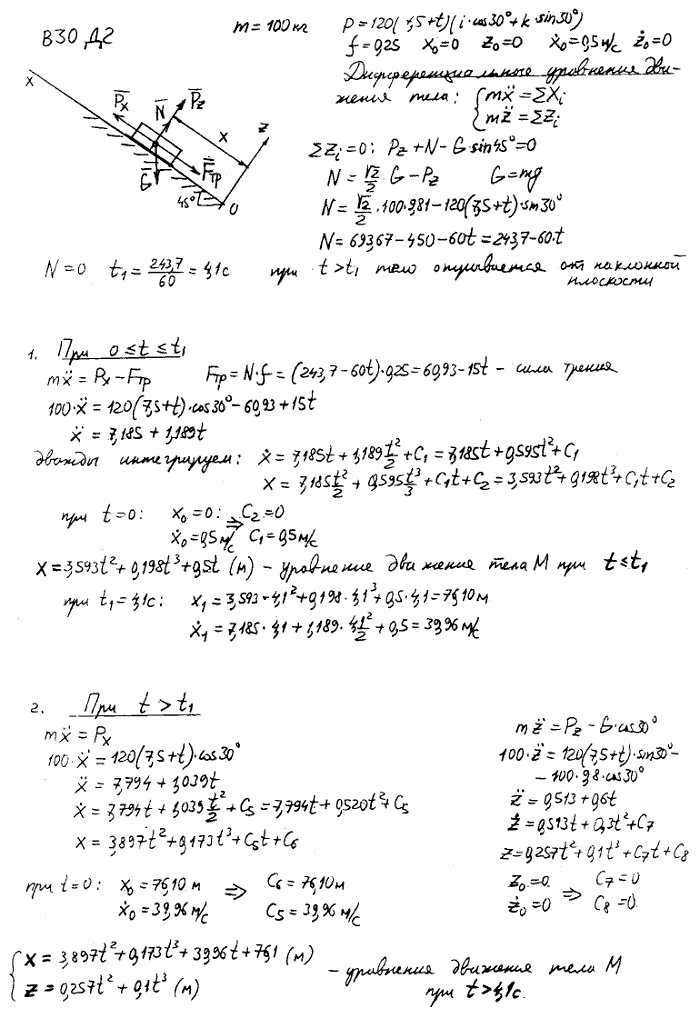 В30 Д2
m = 100 кг
P = 120(7,5+t)(i·cos30°+k·sin30°)
f = 0,25 X₀=0 Z₀=0 ẋ₀=0,5 м/с ż₀=0
Дифференциальные уравнения дви-
жения тела: {mẍ = ΣXᵢ
mz̈ = ΣZᵢ
X P̄x N̄ P̄z X Z
Ḡ F̄тр 45° O
ΣZᵢ=0: Pz+N−G·sin45°=0
N = √2/2·G − Pz G = mg
N = √2/2·100·9,81−120(7,5+t)·sin30°
N = 693,67−450−60t = 243,7−60·t
N=0 t₁ = 243,7/60 = 4,1с при t>t₁ тело отрывается от наклонной
плоскости
1. При 0≤t≤t₁
mẍ = Px−Fтр Fтр = N·f = (243,7−60t)·0,25 = 60,93−15t – сила трения
100·ẍ = 120(7,5+t)·cos30°−60,93+15t
ẍ = 7,185 + 1,189t
дважды интегрируем: ẋ = 7,185t + 1,189 t²/2 + C₁ = 7,185t + 0,595t² + C₁
X = 7,185 t²/2 + 0,595 t³/3 + C₁t + C₂ = 3,593t² + 0,198t³ + C₁t + C₂
при t=0: X₀=0: ⇒ C₂=0
ẋ₀=0,5 м/с C₁=0,5 м/с
X = 3,593t² + 0,198t³ + 0,5t (м) – уравнение движение тела М при t≤t₁
при t₁=4,1с: X₁ = 3,593·4,1² + 0,198·4,1³ + 0,5·4,1 = 76,10 м
ẋ₁ = 7,185·4,1 + 1,189·4,1²/2 + 0,5 = 39,96 м/с
2. При t > t₁
mẍ = Px
100·ẍ = 120(7,5+t)·cos30°
ẍ = 7,794 + 1,039t
ẋ = 7,794t + 1,039 t²/2 + C₅ = 7,794t + 0,520t² + C₅
X = 3,897t² + 0,173t³ + C₅t + C₆
при t=0: X₀ = 76,10 м ⇒ C₆ = 76,10 м
ẋ₀ = 39,96 м/с C₅ = 39,96 м/с
mz̈ = Pz − G·cos30°
100·z̈ = 120(7,5+t)·sin30°−
−100·9,8·cos30°
z̈ = 0,513 + 0,6t
ż = 0,513t + 0,3t² + C₇
Z = 0,257t² + 0,1t³ + C₇t + C₈
Z₀=0 ⇒ C₇=0
ż₀=0 C₈=0
{X = 3,897t² + 0,173t³ + 39,96t + 76,1 (м)
Z = 0,257t² + 0,1t³ (м)
– уравнения движение тела М
при t>4,1с.